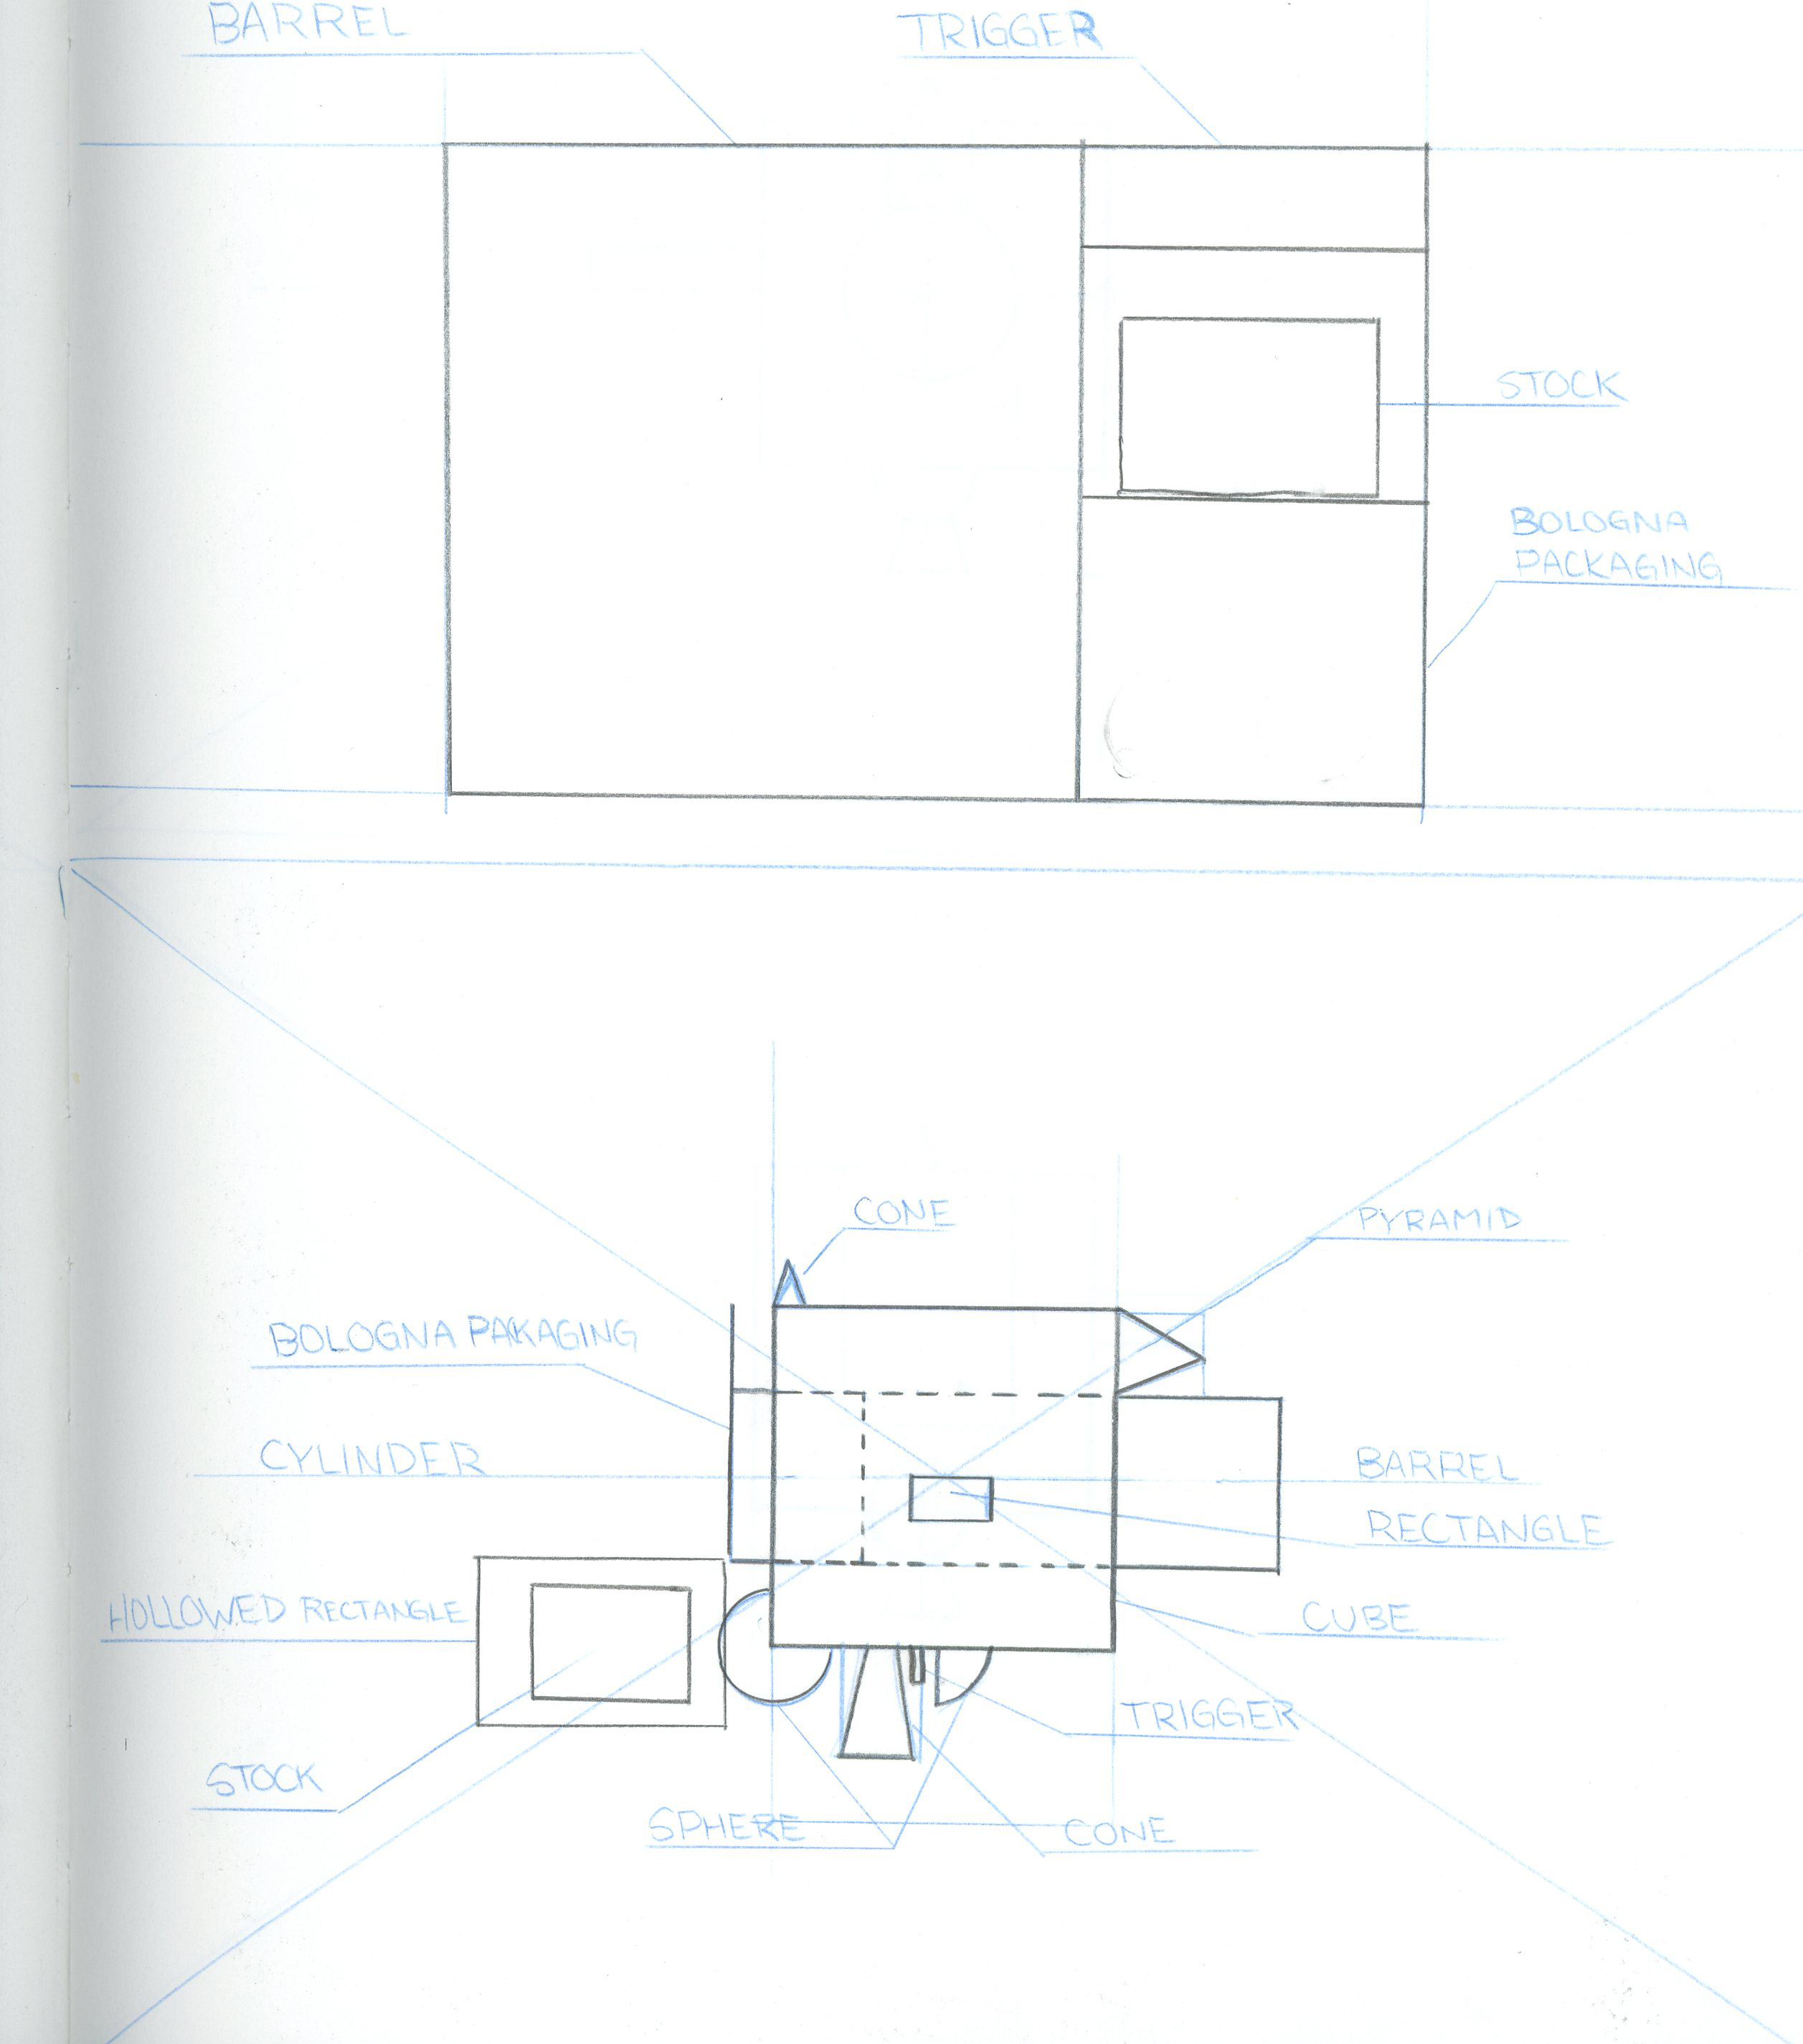 BARREL
TRIGGER
STOCK
BOLOGNA
PACKAGING
CONE
PYRAMID
BOLOGNA PAKAGING
CYLINDER
BARREL
RECTANGLE
HOLLOWED RECTANGLE
CUBE
TRIGGER
STOCK
SPHERE
CONE